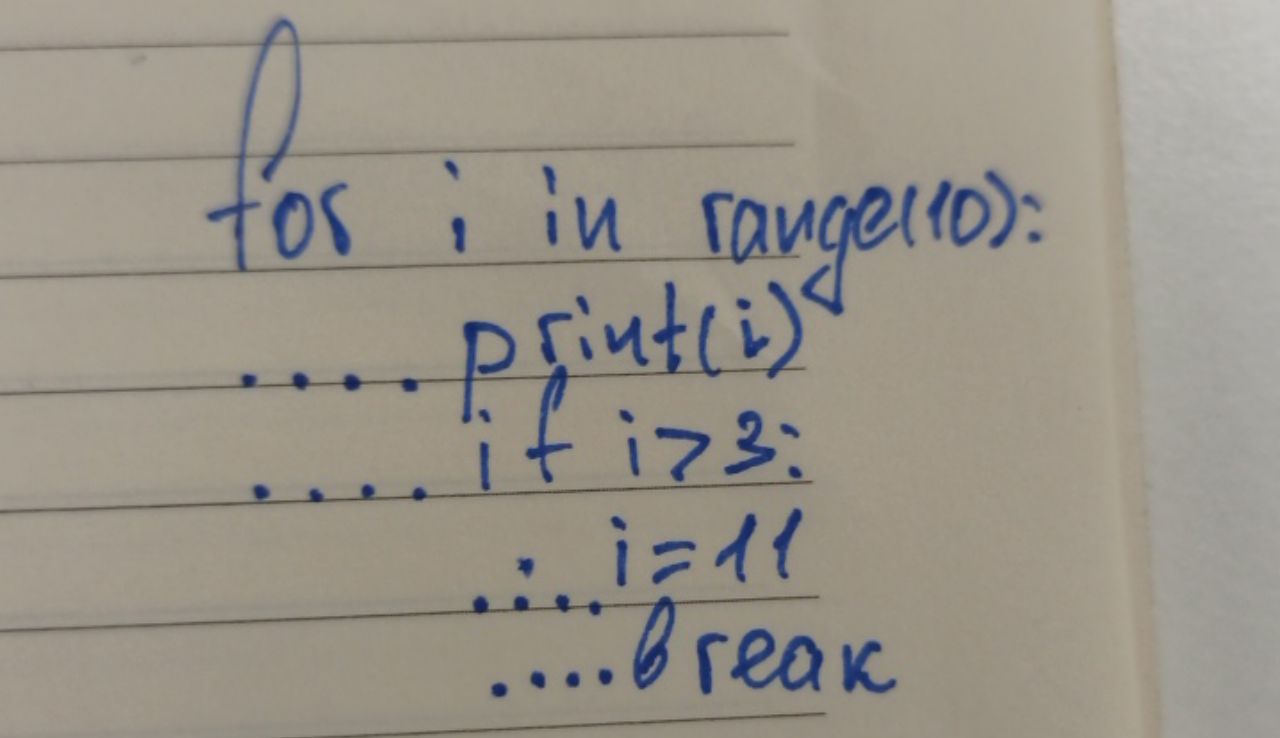 for i in range(10):
....print(i)
....if i>3:
....i=11
....break